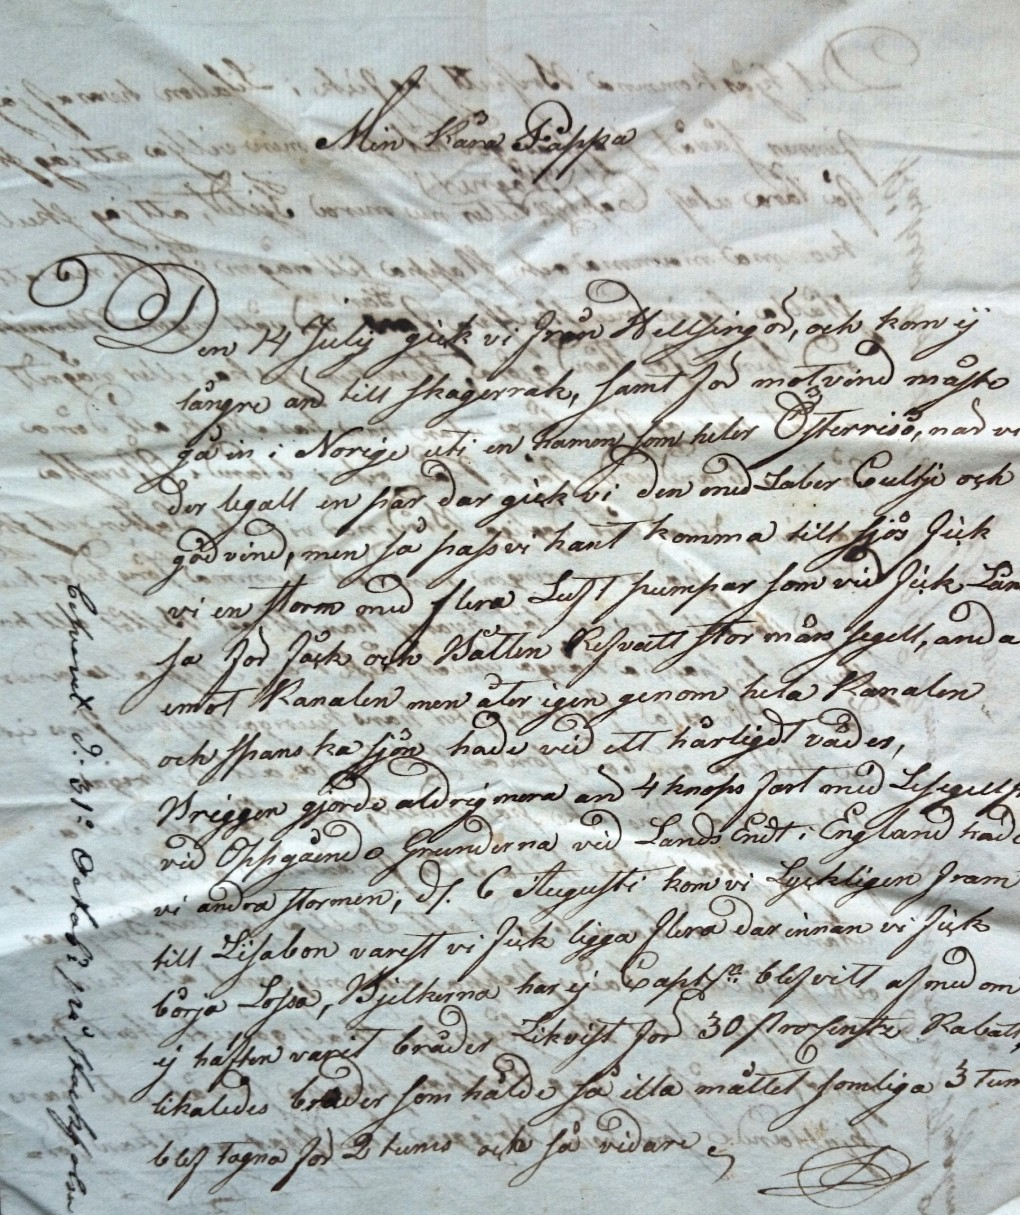 Min Kära Pappa
Den 14 Julij gick vi från Hellsingör, och kom ej
längre än till Skagerrak, samt för motvind måste
gå in i Norige uti en hamen som heter Österrisö, när vi
der legatt en par dar gick vi den med Laber Cultje och
godvind, men så pass vi hant komma till sjös fick
vi en storm med flera Lust pumpar som vid fick Län
sa för fåck och Båtten Refvatt stor märs segell, ända
emot Kanalen men åter igen genom hela Kanalen
och Spanska sjön hade vid ett härligdt väder,
Briggen gjorde aldrig mera än 4 knops fart med Lesegell,
vid Oppgåend o Grunderna vid Lands Endt i England hade
vi andra stormen, d. 6 Augusti kom vi Lyckligen fram
till Lisabon varest vi fick ligga flera dar innan vi fick
börja Lossa, Bjelkerna har ej Capt blefvitt af med om
ej häften varit bräder Likvist för 30 Prosents Rabatt,
likaledes bräder som hälde så illa måttet somliga 3 tum
blef tagna för 2 tums och så vidare
besvart d. 31 Octob: på Stockholm